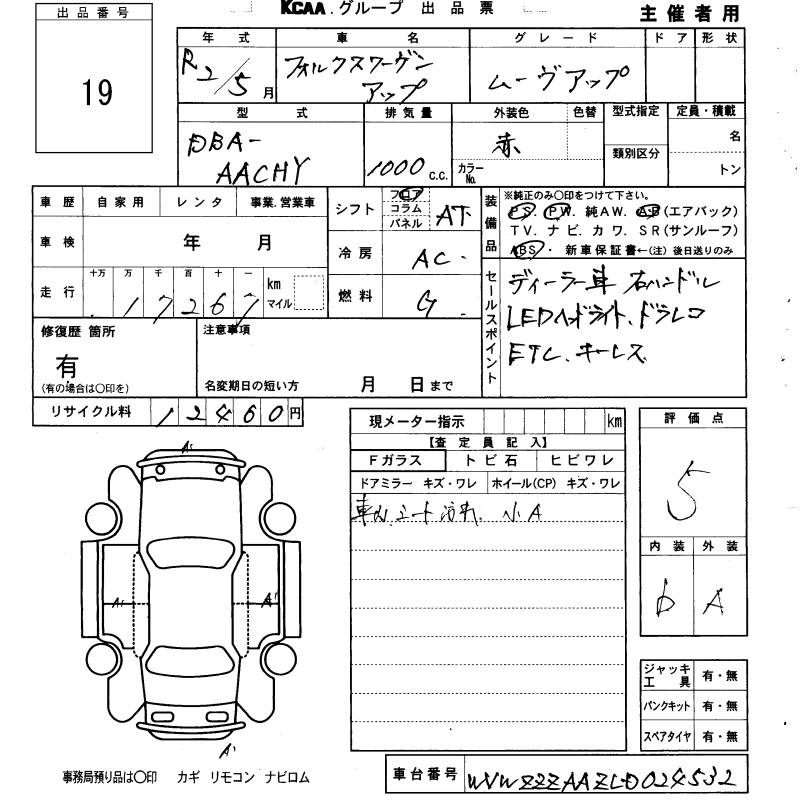 出品番号
19
KCAA.グループ 出品票
主催者用
年式 車名 グレード ドア 形状
R2/5月
フォルクスワーゲン
アップ
ムーヴアップ
型式 排気量 外装色 色替 型式指定 定員・積載
DBA-
AACHY
1000 c.c.
赤
カラーNo.
類別区分
名
トン
車歴 自家用 レンタ 事業.営業車
車検 年 月
走行 十万 万 千 百 十 一
17267 km マイル
シフト フロア コラム パネル AT
冷房 AC
燃料 G
装備品
※純正のみ○印をつけて下さい。
PS. PW. 純AW. AB(エアバック)
TV. ナビ. カワ. SR(サンルーフ)
ABS・新車保証書←(注)後日送りのみ
セールスポイント
ディーラー車 右ハンドル
LEDヘッドライト、ドラレコ
ETC. キーレス
修復歴 箇所
有
(有の場合は○印を)
注意事項
名変期日の短い方 月 日まで
リサイクル料 12460円
現メーター指示 km
【査定員記入】
Fガラス トビ石 ヒビワレ
ドアミラー キズ・ワレ ホイール(CP) キズ・ワレ
車内シート汚れ、小A
評価点
5
内装 外装
b A
A1
A1
A1
A1
ジャッキ工具 有・無
パンクキット 有・無
スペアタイヤ 有・無
事務局預り品は○印 カギ リモコン ナビロム
車台番号 WVWZZZAAZLD024532